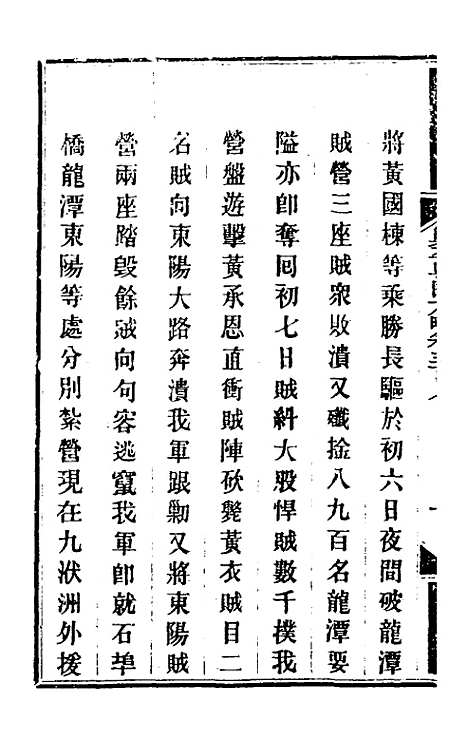 將黃國棟等乘勝長驅於初六日夜間破龍潭
賊營三座賊衆敗潰又殲捡八九百名龍潭要
隘亦卽奪囘初七日賊糾大股悍賊數千撲我
營盤遊擊黃承恩直衝賊陣砍斃黃衣賊目二
名賊向東陽大路奔潰我軍跟勦又將東陽賊
營兩座踏毀餘賊向句容逃竄我軍卽就石埠
橋龍潭東陽等處分別紮營現在九洑洲外援